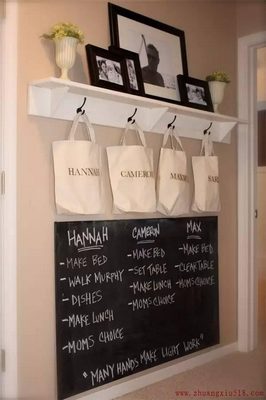 HANNAH
CAMERON
MAX
SAR
HANNAH
- MAKE BED
- WALK MURPHY
- DISHES
- MAKE LUNCH
- MOMS CHOICE
CAMERON
- MAKE BED
- SET TABLE
- MAKE LUNCH
- MOMS CHOICE
MAX
- MAKE BED
- CLEAR TABLE
- MOMS CHOICE
"MANY HANDS MAKE LIGHT WORK"
www.zhuangxiu518.com